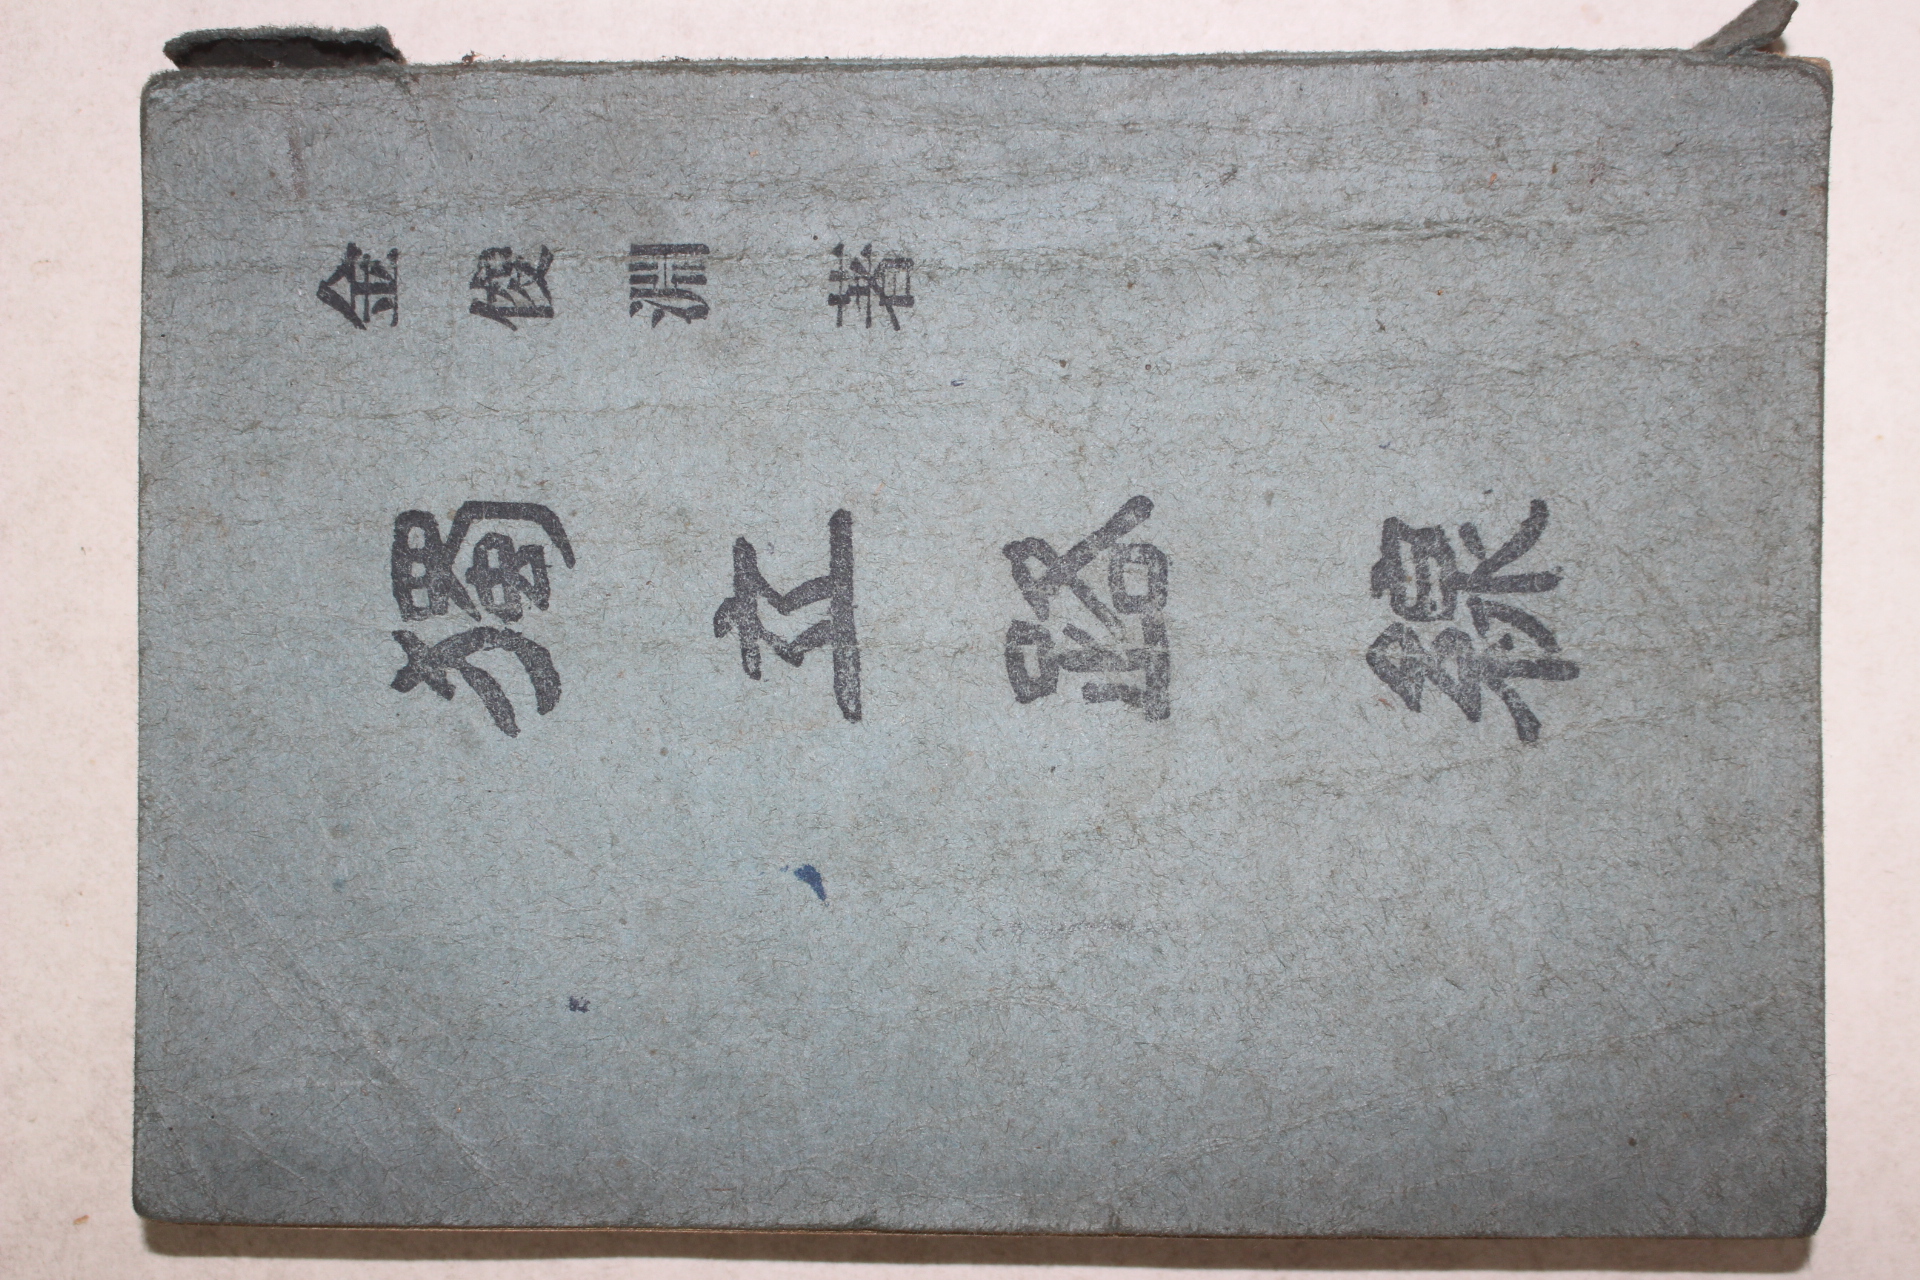 金俊淵 著
獨立路線